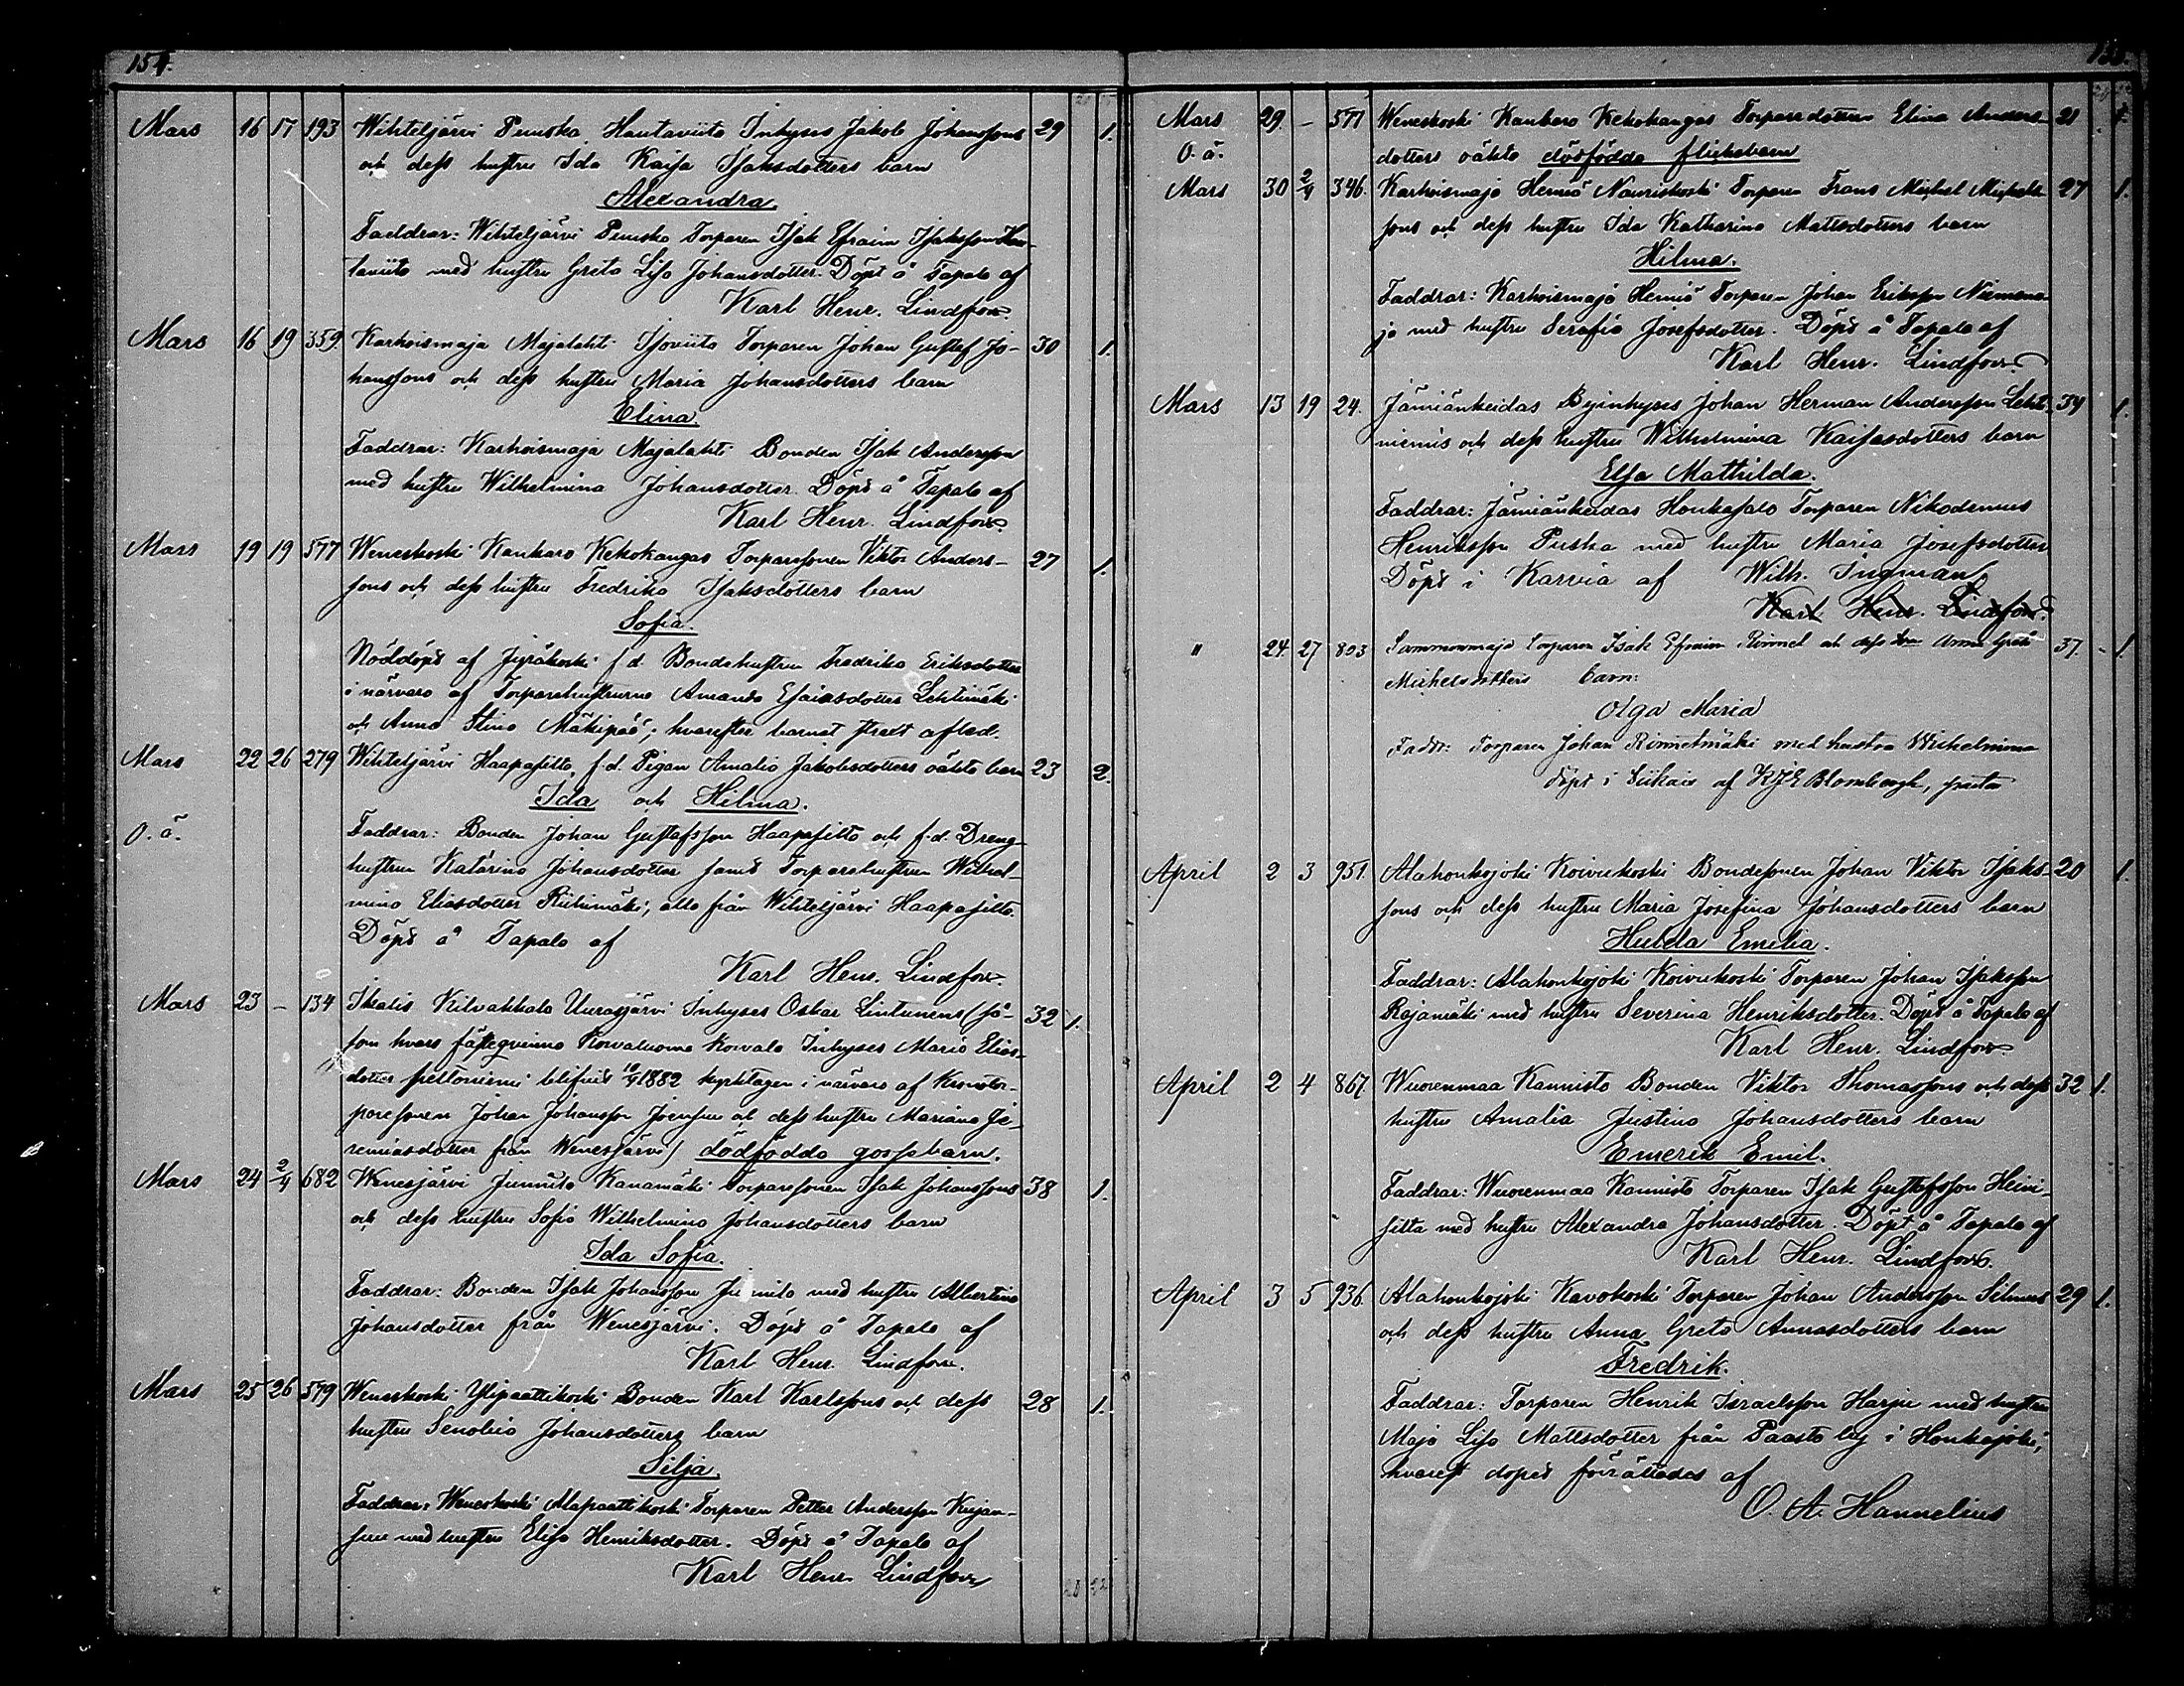 154.
Mars 16 17 193 Wihteljärvi Punska Hautaviita Inhyses Jakob Johanssons 29 1.
och dess hustru Ida Kaisa Isaksdotters barn
Alexandra.
Faddrar: Wihteljärvi Punska Torparen Isak Efraim Isaksson Hau-
taviita med hustru Greta Lisa Johansdotter. Döpt å Tapala af
Karl Henr. Lindfors.
Mars 16 19 359. Karhoismaja Majalahti Isoviita Torparen Johan Gustaf Jo- 30 1.
hanssons och dess hustru Maria Johansdotters barn
Elina.
Faddrar: Karhoismaja Majalahti Bonden Isak Andersson
med hustru Wilhelmina Johansdotter. Döpt å Tapala af
Karl Henr. Lindfors
Mars 19 19 577 Weneskoski Kankaro Kekokangas Torparesonen Viktor Anders- 27 1.
sons och dess hustru Fredrika Isaksdotters barn
Sofia.
Nöddöpt af Jyräkoski f.d. Bondehustrun Fredrika Eriksdotter
i närvaro af Torparehustrurna Amanda Esaiasdotter Lehtimäki
och Anna Stina Mäkipää; hvarefter barnet straxt afled.
Mars 22 26 279 Wihteljärvi Haapasilta, f.d. Pigan Amalia Jakobsdotters oäkta barn 23 2.
Ida och Hilma.
O. ä. Faddrar: Bonden Johan Gustafsson Haapasilta och f.d. Dreng-
hustrun Katarina Johansdotter samt Torparehustrun Wilhel-
mina Eliasdotter Riihimäki, alla från Wihteljärvi Haapasilta.
Döpt å Tapala af
Karl Henr. Lindfors.
Mars 23 - 134 Ikalis Kilvakkala Uurasjärvi Inhyses Oskar Lintunens (så- 32 1.
som hvars fästeqvinna Kowaluoma Kowala Inhyses Maria Elias-
dotter Peltoniemi blifvit 10/4 1882 kyrktagen i närvaro af Kronotor-
paresonen Johan Johansson Joensuu och dess hustru Mariana Je-
remiasdotter från Wenesjärvi) dödfödda gossebarn.
Mars 24 2/4 682 Wenesjärvi Junnila Kanamäki Torparesonen Isak Johanssons 38 1.
och dess hustru Sofia Wilhelmina Johansdotters barn
Ida Sofia.
Faddrar: Bonden Isak Johansson Junnila med hustru Albertina
Johansdotter från Wenesjärvi. Döpt å Tapala af
Karl Henr. Lindfors.
Mars 25 26 579 Weneskoski Ylipaattikoski Bonden Karl Karlssons och dess 28 1.
hustru Senobia Johansdotters barn
Silja.
Faddrar: Weneskoski Alapaattikoski Torparen Petter Andersson Kujan-
suu med hustru Elisa Henriksdotter. Döpt å Tapala af
Karl Henr. Lindfors
Mars 29. - 577 Weneskoski Kankaro Kekokangas Torparedottren Elina Anders- 21 1.
O. ä. dotters oäkta dödfödda flickebarn
Mars 30 2/4 346. Karhoismaja Herniä Nauriskoski Torparen Frans Mickel Mickels- 27 1.
sons och dess hustru Ida Katharina Mattsdotters barn
Hilma.
Faddrar: Karhoismaja Herniä Torparen Johan Eriksson Niemena-
ja med hustru Serafia Josefsdotter. Döpt å Tapala af
Karl Henr. Lindfors
Mars 13 19 24. Jämiänkeidas Byinhyses Johan Herman Andersson Leht- 34 1.
niemis och dess hustru Wilhelmina Kaisasdotters barn
Elsa Mathilda.
Faddrar: Jämiänkeidas Honkasalo Torparen Nikodemus
Henriksson Puska med hustru Maria Josefsdotter
Döpt i Karvia af Wilh. Ingman
Karl Henr. Lindfors.
" 24. 27 803 Sammonmaja Torparen Isak Efraim Rinnel och dess hru Anna Greta 37. 1.
Michelsdotters barn:
Olga Maria
Faddr: Torparen Johan Rinnetmäki med hustru Wilhelmina
döpt i Siikais af K J E Blombergh,
April 2 3 951. Alahonkajoki Koivukoski Bondesonen Johan Viktor Isaks- 20 1.
sons och dess hustru Maria Josefina Johansdotters barn
Hulda Emilia.
Faddrar: Alahonkojoki Koivukoski Torparen Johan Isaksson
Rajamäki med hustru Severina Henriksdotter. Döpt å Tapala af
Karl Henr. Lindfors
April 2 4 867 Wuorenmaa Kannisto Bonden Viktor Thomassons och dess 32 1.
hustru Amalia Justina Johansdotters barn
Emerik Emil.
Faddrar: Wuorenmaa Kannisto Torparen Isak Gustafsson Heini-
silta med hustru Alexandra Johansdotter. Döpt å Tapala af
Karl Henr. Lindfors.
April 3 5 936. Alahonkojoki Kavokoski Torparen Johan Andersson Silmus 29 1.
och dess hustru Anna Greta Annasdotters barn
Fredrik.
Faddrar: Torparen Henrik Israelsson Harju med hustru
Maja Lisa Mattsdotter från Paasto by i Honkajoki,
hvarest dopet förrättades af
O. A. Hannelius